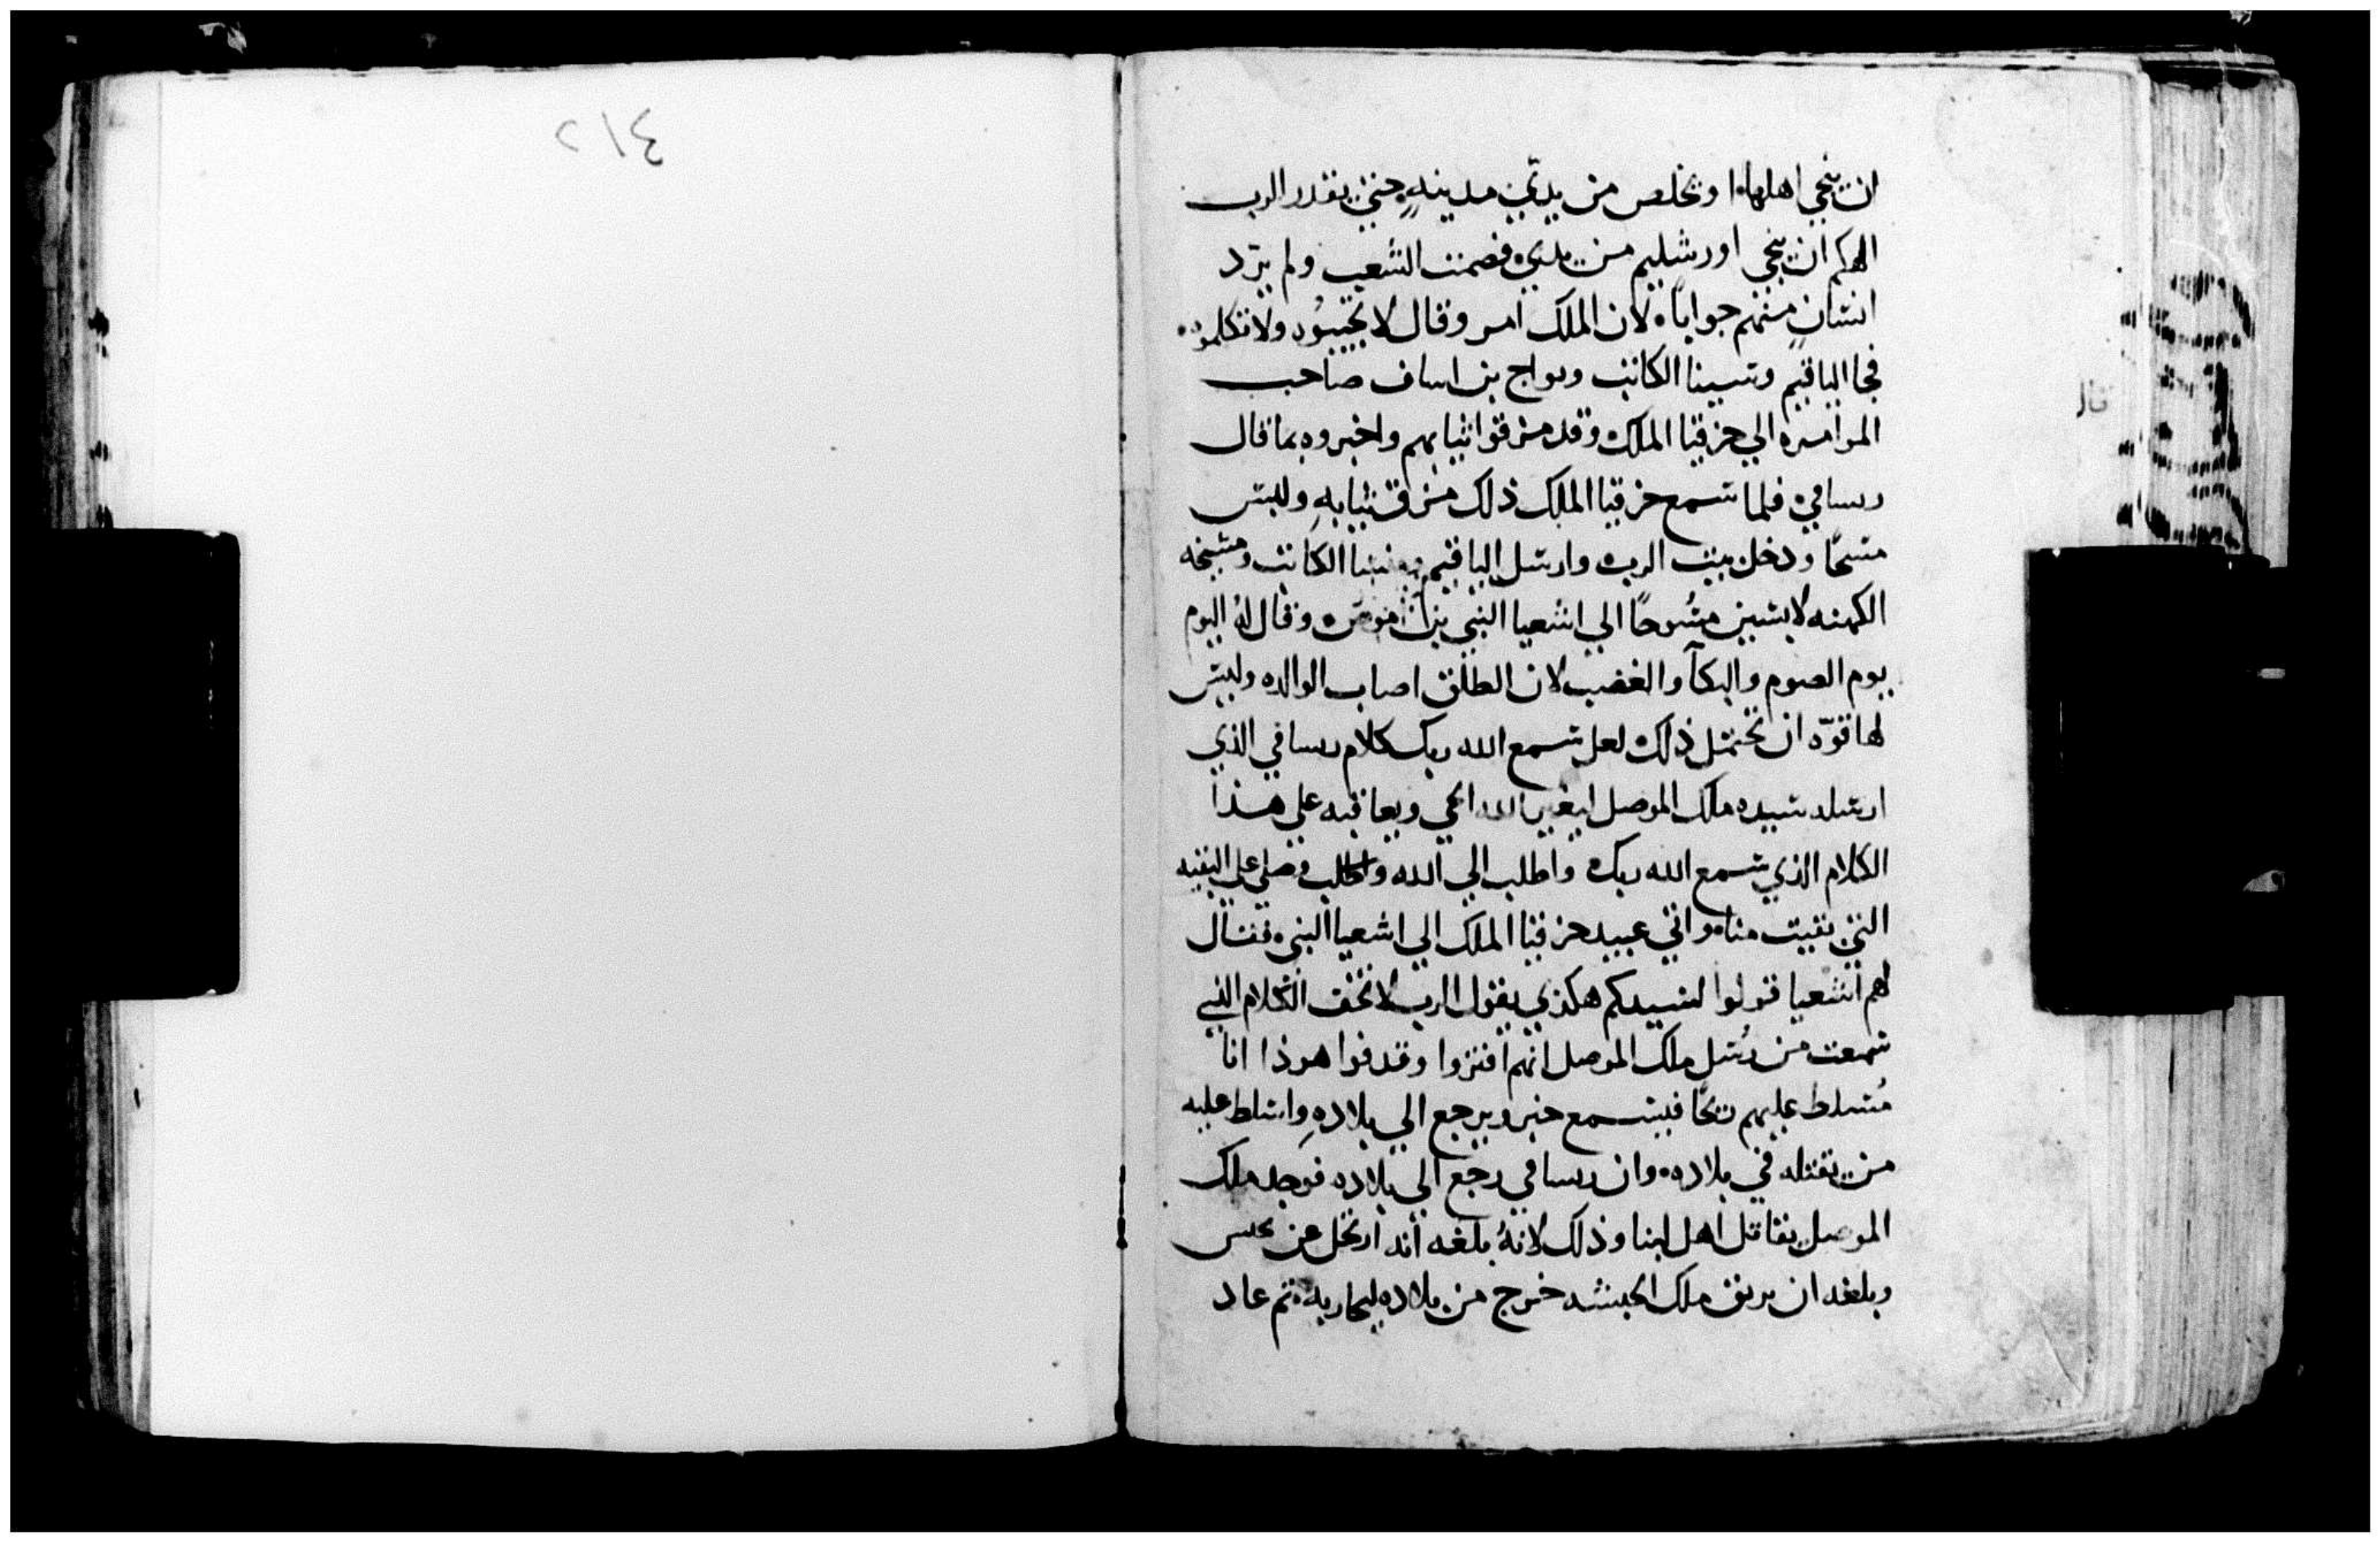 ان ينجي اهلها او تخلص من يدي مدينه حتي يقدر الرب
الهكم ان ينجي اورشليم من يدي فصمت الشعب ولم يرد
انسان منهم جواباً لان الملك امر وقال لا تجيبوه ولا تكلموه
فجا الياقيم وسبنا الكاتب ويواح بن اساف صاحب
الموامره الي حزقيا الملك وقد مزقوا ثيابهم واخبروه بما قال
ربساقي فلما سمع حزقيا الملك ذلك مزق ثيابه ولبس
مسحًا ودخل بيت الرب وارسل الياقيم وسبنا الكاتب ومشيخه
الكهنه لابسين مسُوحًا الي اشعيا النبي بن اموص وقال لهُ اليوم
يوم الصوم والبكآ والغضب لان الطلق اصاب الوالده وليس
لها قوّه ان تحتمل ذلك لعل سمع الله ربك كلام ربساقي الذي
ارسله سيده ملك الموصل ليغير الله الحي ويعاقبه علي هذا
الكلام الذي سمع الله ربك واطلب الي الله واطلب وصلي علي البقيه
التي بقيت منا واتي عبيد حزقيا الملك الي اشعيا النبي فقال
لهم اشعيا قولوا لسيدكم هكذي يقول الرب لا تخف الكلام الذي
سمعت من رُسل ملك الموصل انهم افتروا وقدفوا هوذا انا
مُسلط عليهم ريحًا فيسمع خبر ويرجع الي بلاده واسلط عليه
من يقتله في بلاده وان ربساقي رجع الي بلاده فوجد ملك
الموصل يقاتل اهل لبنا وذلك لانهُ بلغه انه ارتحل عن لحيس
وبلغه ان برنق ملك الحبشه خرج من بلاده ليحاربه ثم عاد
قال
٢١٤